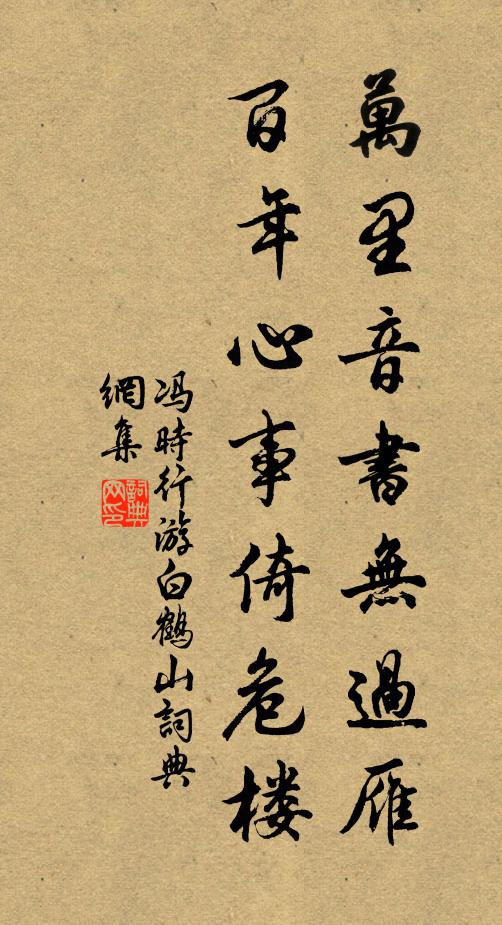 萬里音書無過雁
百年心事倚危楼
冯時行游白鶴山詞典
網集
詞典网印